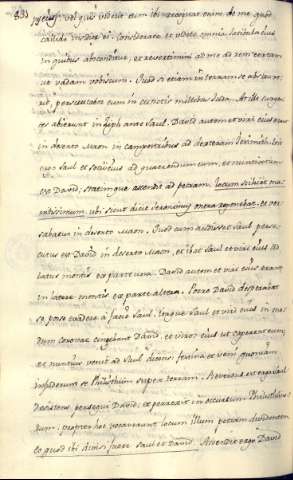 pes eius, vel quis viderit eum ibi: recogitat enim de me, quod
callide insidier ei. Considerate et videte omnia latibula eius
in quibus absconditur, et revertimini ad me ad rem certam
ut vadam vobiscum. Quod si etiam in terram se abstru
rit, perscrutabor eum in cunctis millibus Iuda. At illi surgen
tes abierunt in Ziph ante Saul. David autem et viri eius erant
in deserto Maon in campestribus ad dexteram Iesimon. Ivit
ergo Saul et socii eius ad quaerendum eum, et nuntiatum
est David, statimque descendit ad petram, locum scilicet mu
nitissimum
et ver
sabatur in deserto Maon. Quod cum audisset Saul perse
cutus est David in deserto Maon, et ibat Saul et viri eius ad
latus montis ex parte una. David autem et viri eius erant
in latere montis ex parte altera. Porro David desperabat
se posse evadere a facie Saul. Itaque Saul et viri eius in mo
dum coronae cingebant David, et viros eius ut caperent eum,
et nuntius venit ad Saul dicens: festina et veni quoniam
infuderunt se Philisthiim super terram. Reversus est ergo Saul
desistens persequi David, et perrexit in occursum Philisthino
rum, propter hoc vocaverunt locum illum petram dividentem
eo quod ibi divisi fuere Saul et David. Ascendit ergo David